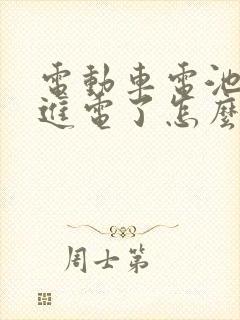 電動車電池
進電了怎麼
周士第